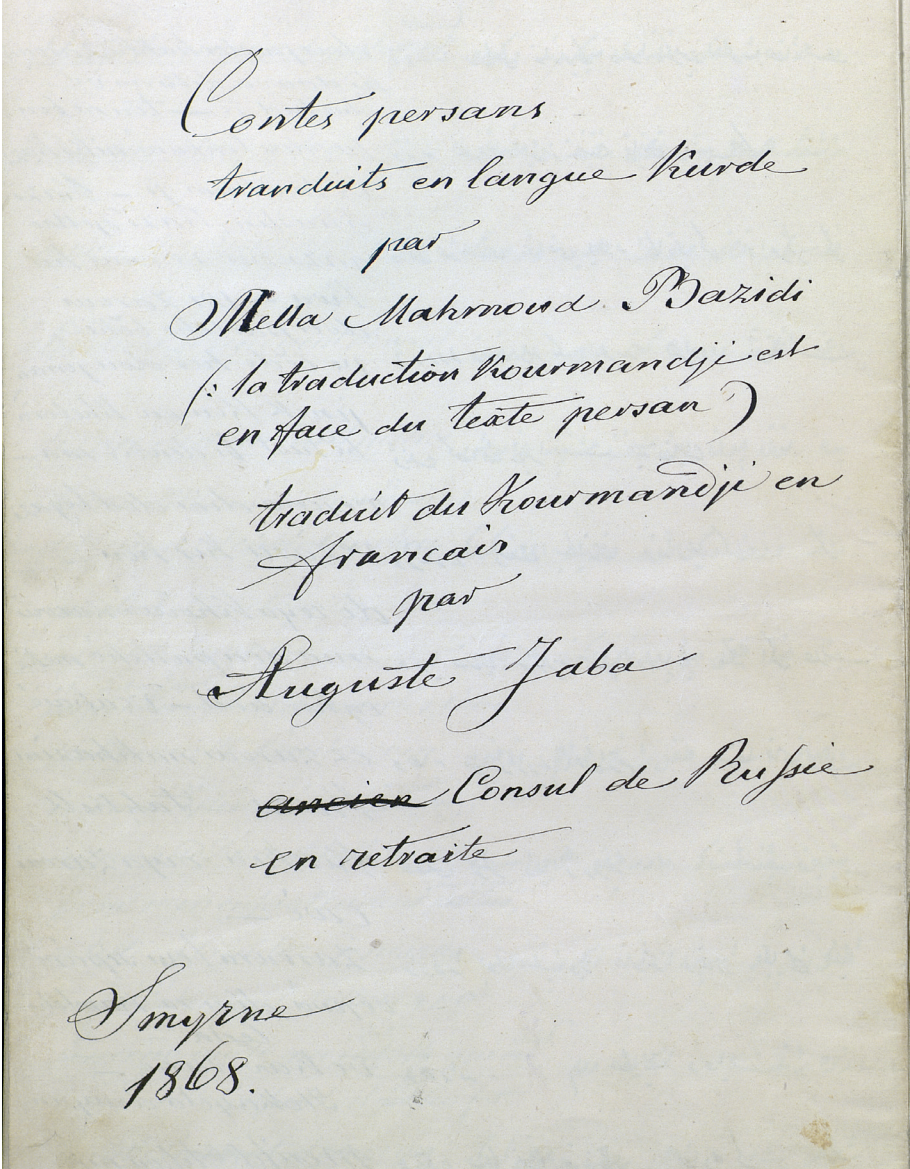 Contes persans
tranduits en langue Kurde
par
Mella Mahmoud Bazidi
(: la traduction Kourmandji est
en face du texte persan )
traduit du Kourmandji en
francais
par
Auguste Jaba
ancien Consul de Russie
en retraite
Smyrne
1868.